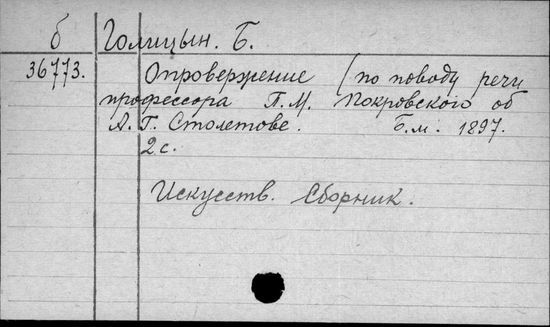 б Голицын. Б.
36773. Опровержение (по поводу речи
профессора П.М. Покровского об
А.Г. Столетове. Б.м. 1897.
2 с.
Искусств. Сборник.